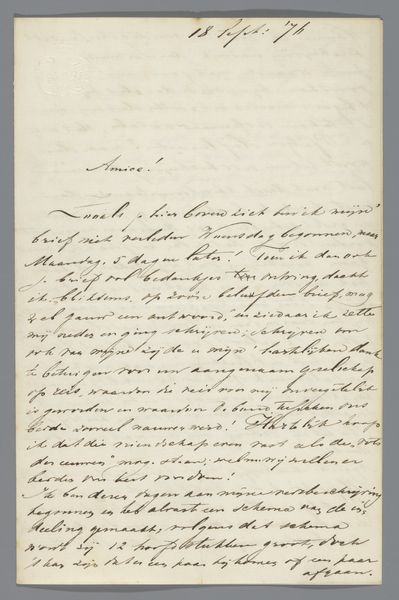 18 Sept: '76
Amice!
Zooals je hier boven ziet ben ik mijn
brief niet verleden Woensdag begonnen, maar
Maandag, 5 dagen later! Toen ik dan ook
je brief vol bedankjes ontving, dacht
ik bliksems, op zoo'n beleefden brief, mag
wel gauw een antwoord, en ziedaar ik zette
mij neder en ging schrijven; schrijven om
ook van mijne zijde u mijn' hartelijken dank
te betuigen voor uw aangenaam gezelschap
op reis, waardoor die reis voor mij
is geworden en waardoor de band tusschen ons
beide zooveel nauwer werd! Hartelijk hoop
ik dat die vriendschap even vast als de "rots
der eeuwen" mag staan; welnu wij zullen er
beide ons best voor doen!
Ik ben dezer dagen aan mijne reisbeschrijving
begonnen en heb alvast een schema van de in-
deeling gemaakt; volgens dat schema
wordt zij 12 hoofdstukken groot, doch
er kan zijn dat er een paar bij komen of een paar
afgaan.